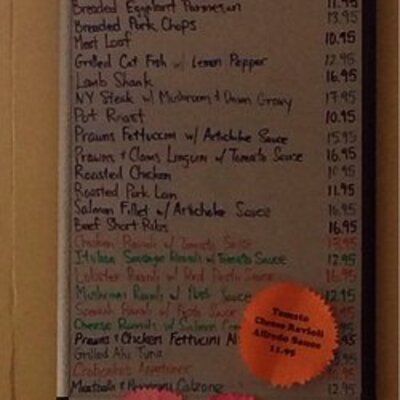 Breaded Eggplant Parmesan 11.95
Breaded Pork Chops 13.95
Meat Loaf 10.95
Grilled Cat Fish w/ Lemon Pepper 12.95
Lamb Shank 16.95
NY Steak w/ Mushroom & Onion Gravy 17.95
Pot Roast 10.95
Prawns Fettuccini w/ Artichoke Sauce 15.95
Prawns & Clams Linguini w/ Tomato Sauce 16.95
Roasted Chicken
Roasted Pork Loin 11.95
Salmon Fillet w/ Artichoke Sauce 16.95
Beef Short Ribs 16.95
Chicken Ravioli w/ Tomato Sauce
Italian Sausage Ravioli w/ Tomato Sauce 12.95
Lobster Ravioli w/ Red Pesto Sauce 16.95
Mushroom Ravioli w/ Pesto Sauce 12.95
Ravioli w/ Pesto Sauce
Cheese Ravioli w/ Salmon
Prawns & Chicken Fettucini Al
Grilled Ahi Tuna
Crabcakes Appetizer
Meatballs & Pepperoni Calzone 12.95
Tomato
Cheese Ravioli
Alfredo Sauce
11.95